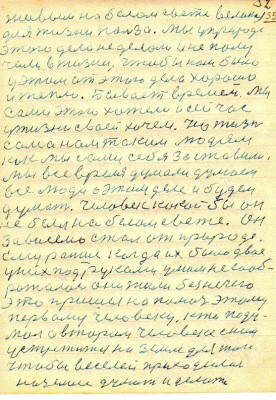 живём на белом свете велика
для жизни польза. Мы у природе
этого дела не делом и не полу
чали в жизни, чтобы нам было
у этом от этого дела хорошо
и тепло. Бывает временем. Мы
сами этого хотели и сейчас
у жизни своей хочем. Но жизнь
сама нам таким людям
как мы сами себя заставили.
Мы все время думали думаем
все люди о этом деле и будем
думать. Человек какой бы он
не был на белом свете. Он
зависимо стал от природе.
Ему раньше когда их было двое
у них под руками
они жили без чего
это пришли на помощь этому
первому человеку. кто поду-
мал о втором человеке с ним
устретится на земле для того
чтобы веселей приходилось
начение думать и делать